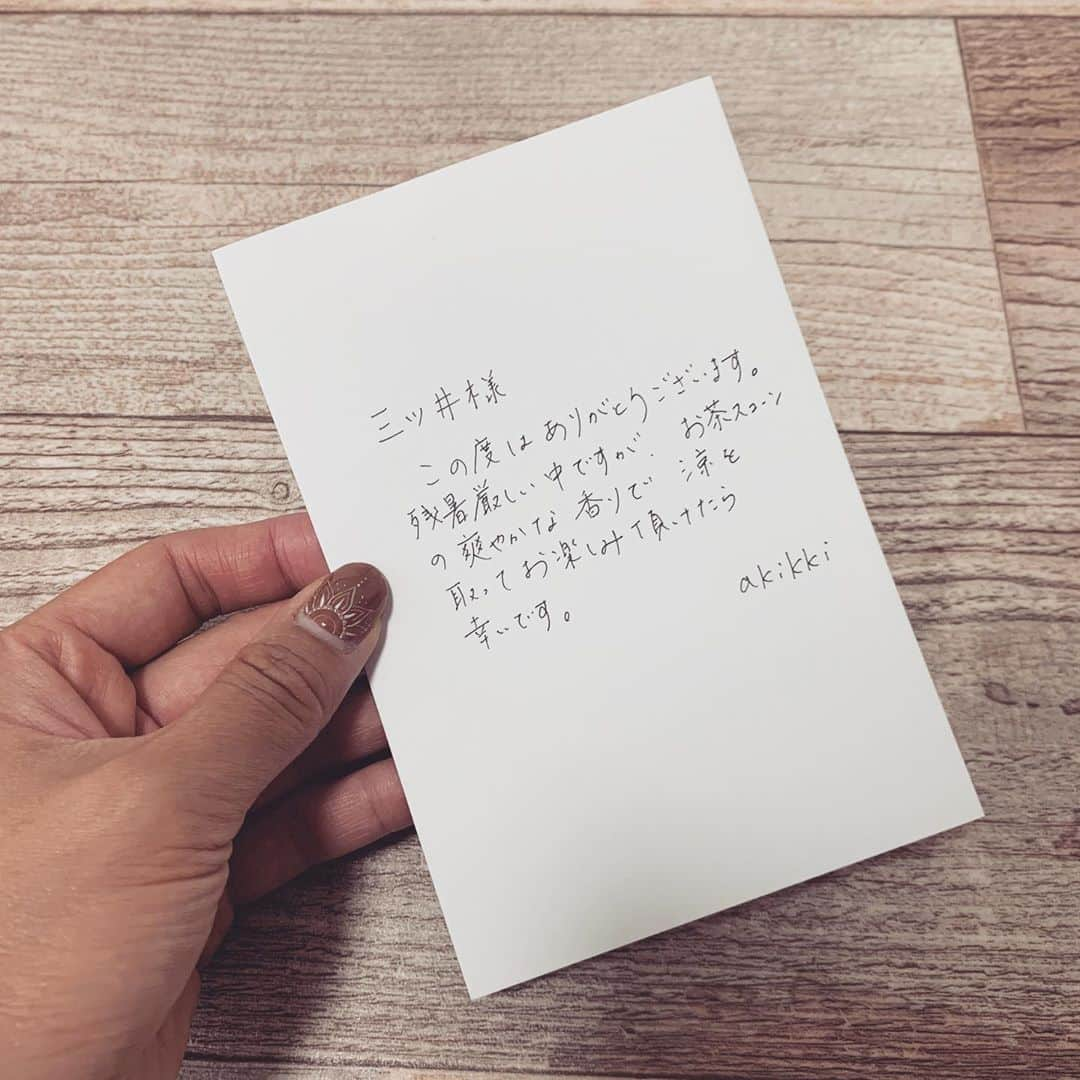 三ッ井様
この度は ありがとうございます。
残暑厳しい中ですが、お茶スコーン
の爽やかな香りで 涼を
取ってお楽しみ頂けたら
幸いです。
akikki